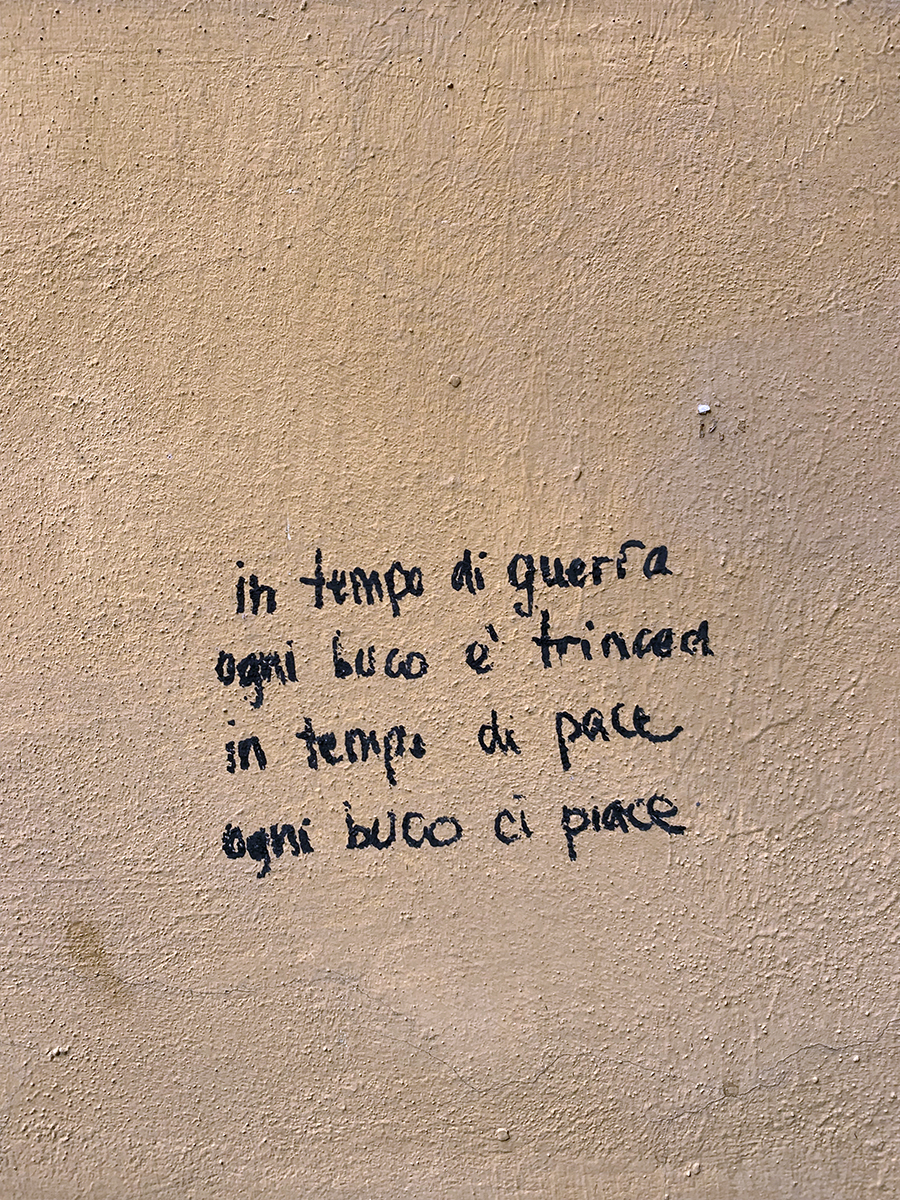 in tempo di guerra
ogni buco e' trincea
in tempo di pace
ogni buco ci piace